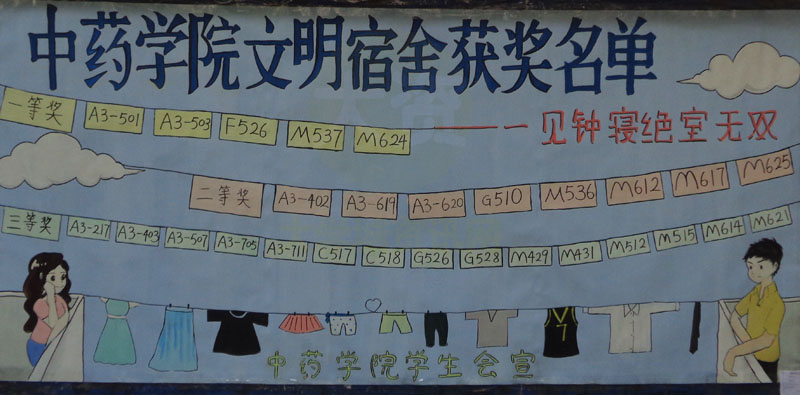 中药学院文明宿舍获奖名单
一等奖 A3-501 A3-503 F526 M537 M624
——一见钟寝绝室无双
二等奖 A3-402 A3-619 A3-620 G510 M536 M612 M617 M625
三等奖 A3-217 A3-403 A3-507 A3-705 A3-711 C517 C518 G526 G528 M429 M431 M512 M515 M614 M621
7
中药学院学生会宣